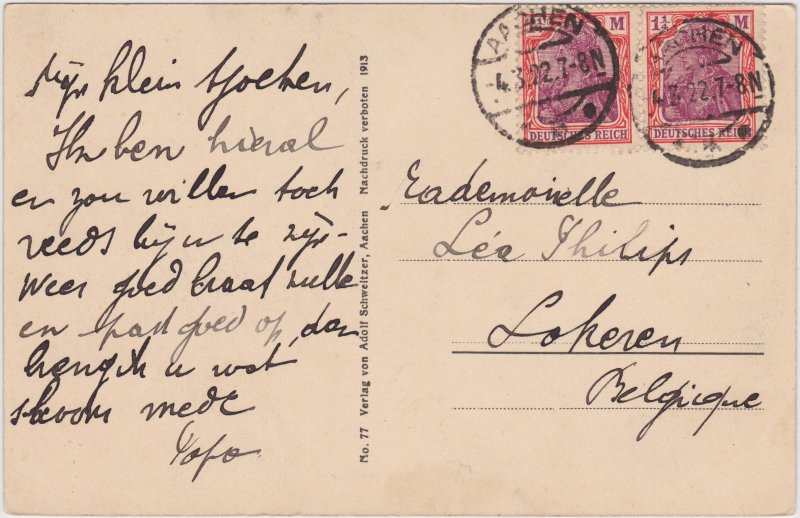 Mijn klein
Ik ben hieral
en zou willen toch
reeds bij u te zijn -
Weer goed braaf zulle
en past goed op, dan
breng ik u wat
schoon mede
Popo
No. 77 Verlag von Adolf Schweitzer, Aachen Nachdruck verboten 1913
AACHEN
4.3.22.7-8N
M
DEUTSCHES REICH
AACHEN
4.3.22.7-8N
1¼ M
DEUTSCHES REICH
Mademoiselle
Léa Philips
Lokeren
Belgique